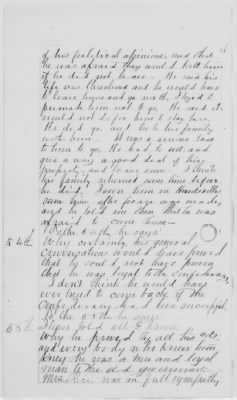 of his political opinions and that
he was afraid they would kill him
if he did not leave. He said his
life was threatened and he would have
to leave home and go north. I tried to
persuade him not to go. He said it
would not do for him to stay here.
He did go and took his family
with him. It was a serious loss
to him to go. He had to sell and
give away a good deal of his
property and leave some. I think
his family returned some time before
he died. I seen him in Huntsville
some time after peace was made
and he told me then that he was
afraid to come home.
To the 5th he says
54th
Why certainly, his general
conversation would have proved
that he could not have proven
that he was loyal to the Confederacy
I don't think he would have
ever tried to come back if the
Confederacy had been successful
To the 65th he says
65th
I have told all I know.
Why he proved by all his acts
and every body who knew him
knew he was a true and loyal
man to the old government
Mrs was in full sympathy